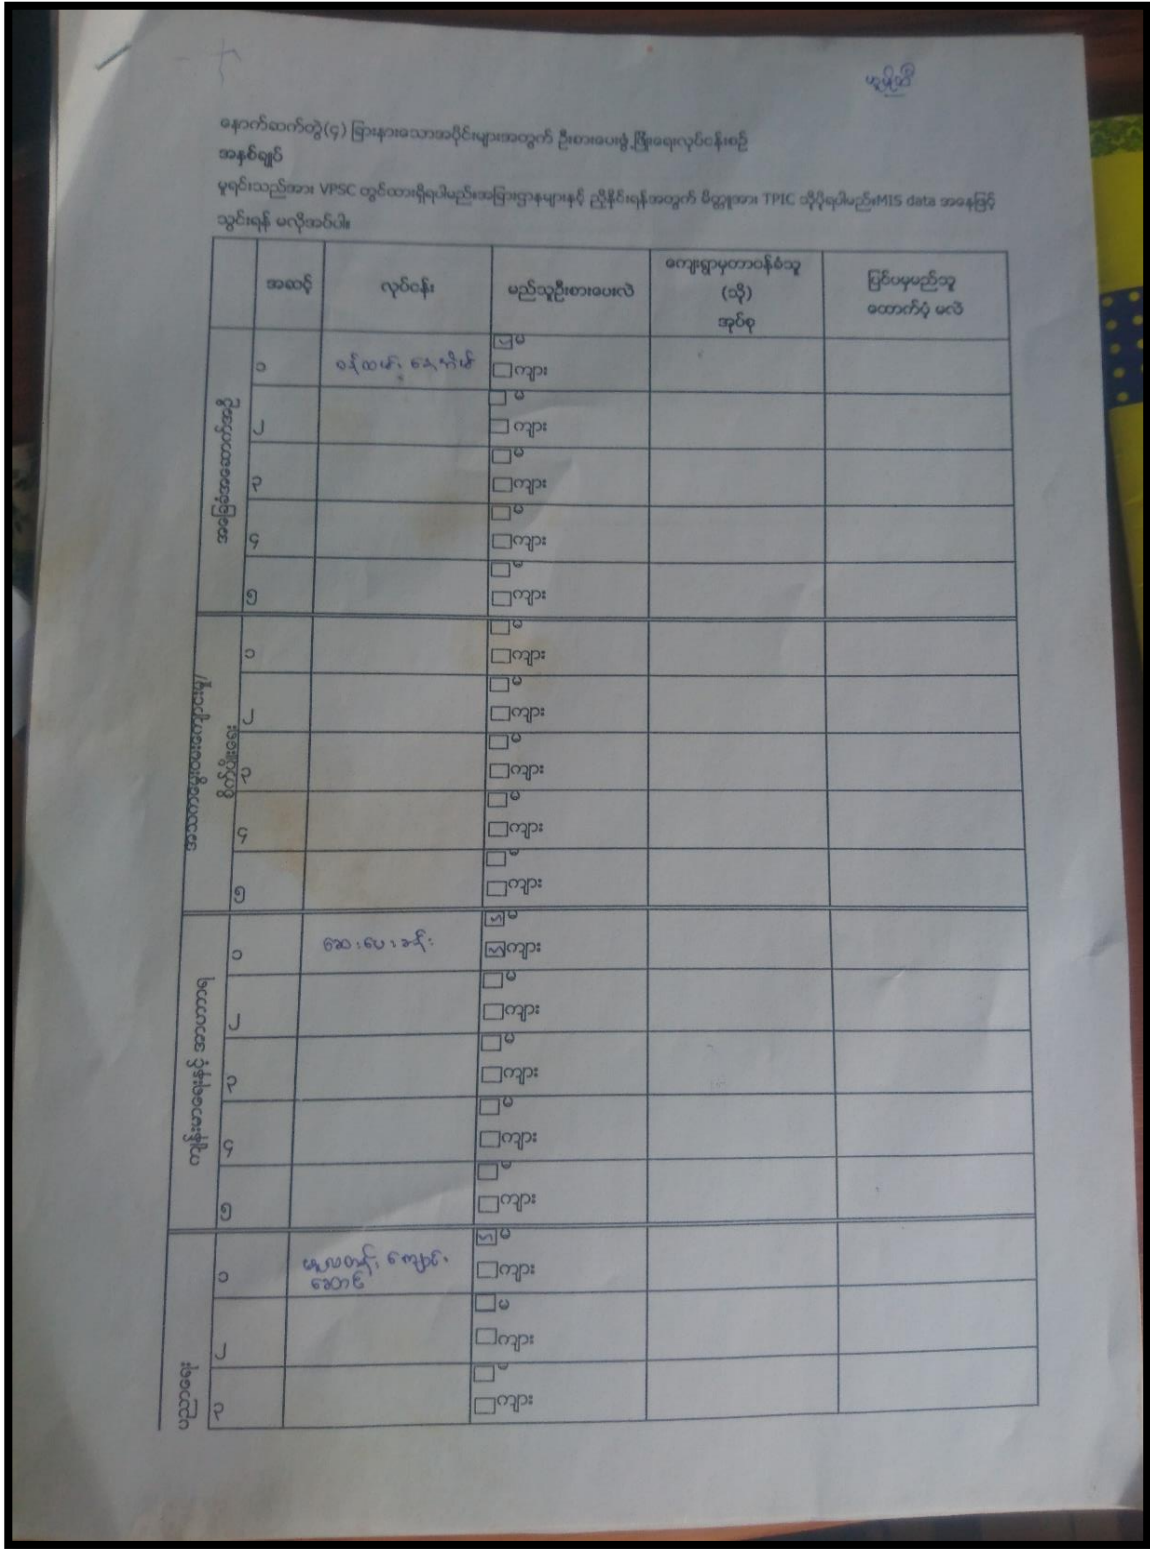 ဟူမ္ရိုထီ
နောက်ဆက်တွဲ(၄) ခြားနားသောအပိုင်းများအတွက် ဦးစားပေးဖွံ့ဖြိုးရေးလုပ်ငန်းစဉ်
အနှစ်ချုပ်
မူရင်းသည်အား VPSC တွင်ထားရှိရပါမည်။အခြားဌာနများနှင့် ညှိနှိုင်းရန်အတွက် မိတ္တူအား TPIC သို့ပို့ရပါမည်။MIS data အနေဖြင့်
သွင်းရန် မလိုအပ်ပါ။
အဆင့် လုပ်ငန်း မည်သူဦးစားပေးလဲ ကျေးရွာမှတာဝန်ခံသူ (သို့) အုပ်စု ပြင်ပမှမည်သူ ထောက်ပံ့ မလဲ
အခြေခံအဆောက်အဦ
၁ ဝန်ထမ်း နေအိမ် မ
ကျား
၂ မ
ကျား
၃ မ
ကျား
၄ မ
ကျား
၅ မ
ကျား
အသက်မွေးဝမ်းကျောင်းမှု/
စိုက်ပျိုးရေး
၁ မ
ကျား
၂ မ
ကျား
၃ မ
ကျား
၄ မ
ကျား
၅ မ
ကျား
ကျန်းမာရေးနှင့် အာဟာရ
၁ ဆေးပေးခန်း မ
ကျား
၂ မ
ကျား
၃ မ
ကျား
၄ မ
ကျား
၅ မ
ကျား
ပညာရေး
၁ မူလတန်း ကျောင်း မ
ဆောင် ကျား
၂ မ
ကျား
၃ မ
ကျား